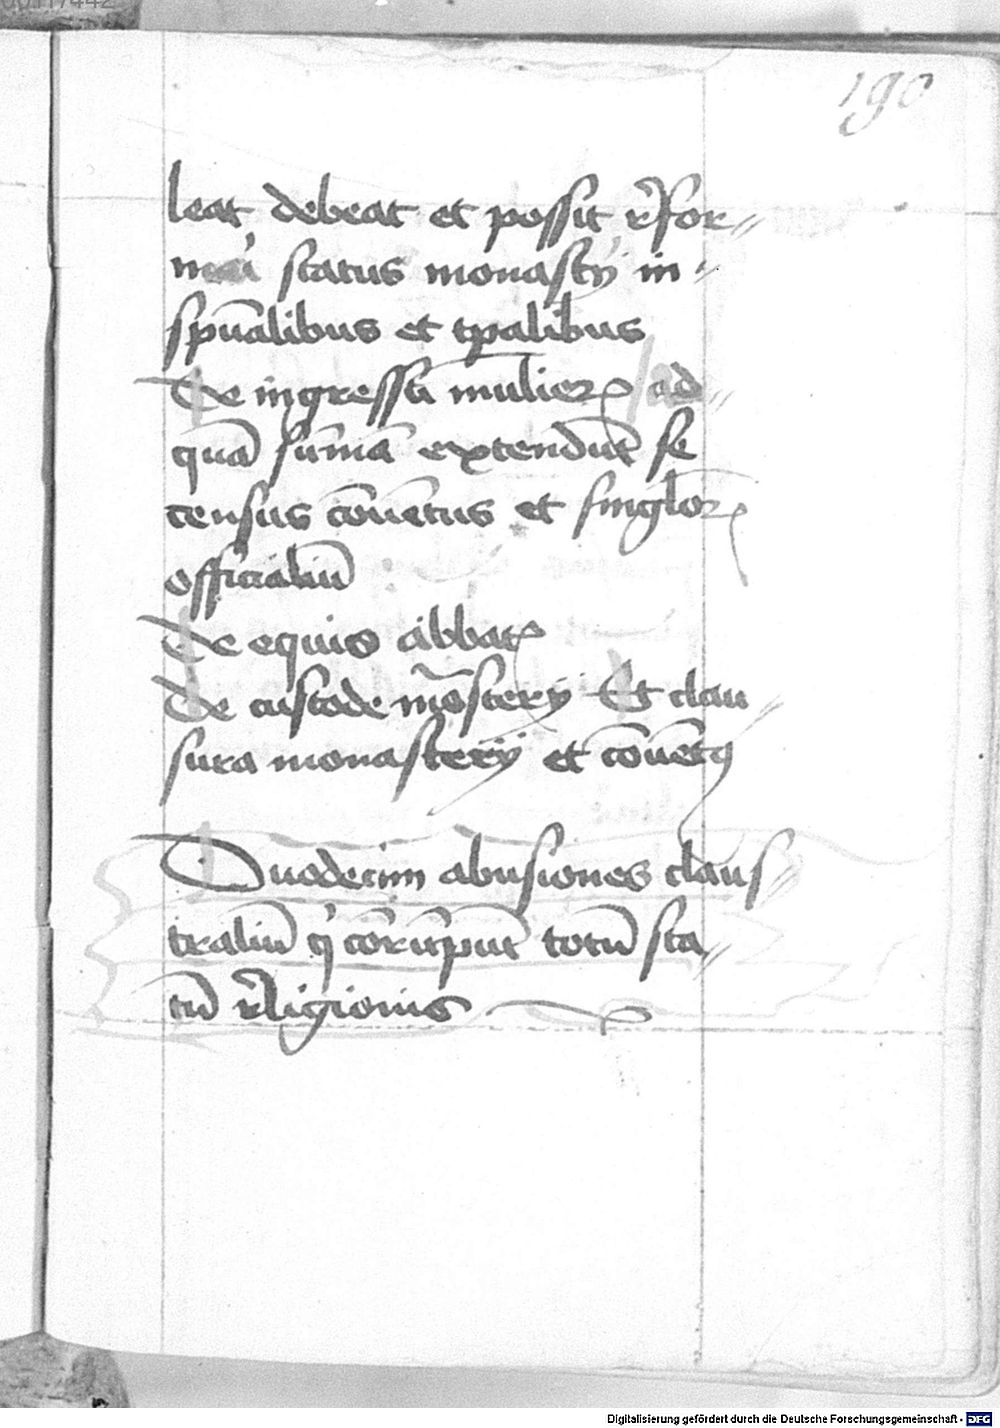 190
leat debeat et possit r̄for⸗
mari status monastȳ in⸗
sp̄ualibus et tp̄alibus
De ingressu mulierꝝ / ad⸗
quā sum̄ā extendūt se
census cōuētus et singl̄orꝝ
officialiū
De equis abbatꝭ
De custode mōastery Et clau⸗
sura monastery et cōuētꝰ
Duodecim abusiones claus⸗
traliū q̇ cōrūpūt totū sta⸗
tū r̄ligionis
Digitalisierung gefördert durch die Deutsche Forschungsgemeinschaft - DFG